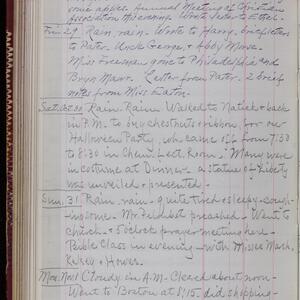 some apples. Annual Meeting of Christian
Association this evening. Wrote letter to Ethel.
Fri. 29 Rain, rain. Wrote to Harry. brief letters
to Pater. Uncle George, & Abby Morse.
Miss Freeman gone to Philadelphia and
Bryn Mawr. Letter from Pater. 2 brief
notes from Miss Eaton.
Sat. Oct. 30 Rain. Rain. Walked to Natick & back
in P.M. to buy chestnuts & ribbon, for our
Halloween Party, wh. came off from 7:30
to 8:30 in Chem. Lect. Room. Many were
in costume at Dinner. a statue of Liberty
was unveiled & presented.
Sun. 31 Rain, rain - quite tired & sleepy - cough-
ing some. Mr. preached - Went to
church. & 5 o'clock prayer meeting here.
Bible Class in evening - with Misses Marsh,
& Howes.
Mon. Nov. 1 Cloudy in A.M. - Cleared about noon -
Went to Boston at 8:15. did shopping -